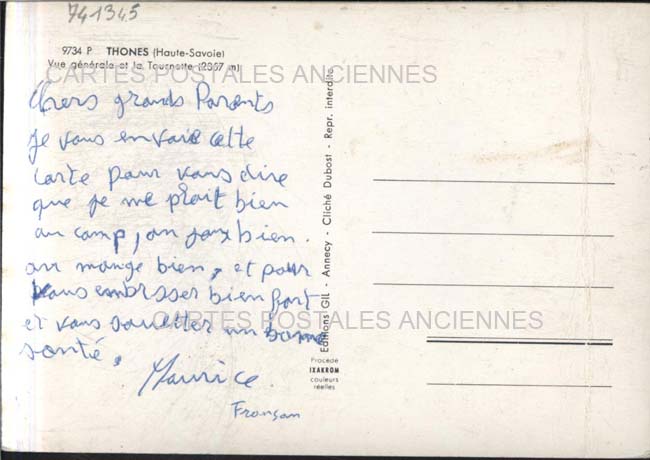 741345
9734 P THONES (Haute-Savoie)
Vue générale et la Tournette (2357 m)
CARTES POSTALES ANCIENNES
Chers grands Parents
je vous envoie cette
carte pour vous dire
que je me plait bien
au camp, on joux bien.
on mange bien, et pour
vous embrsser bien fort
et vous souaiter un bonne
santé.
Maurice
Editions GIL - Annecy - Cliché Dubost - Repr. interdite
CARTES POSTALES ANCIENNES
Procédé
IXAKROM
couleurs
réelles